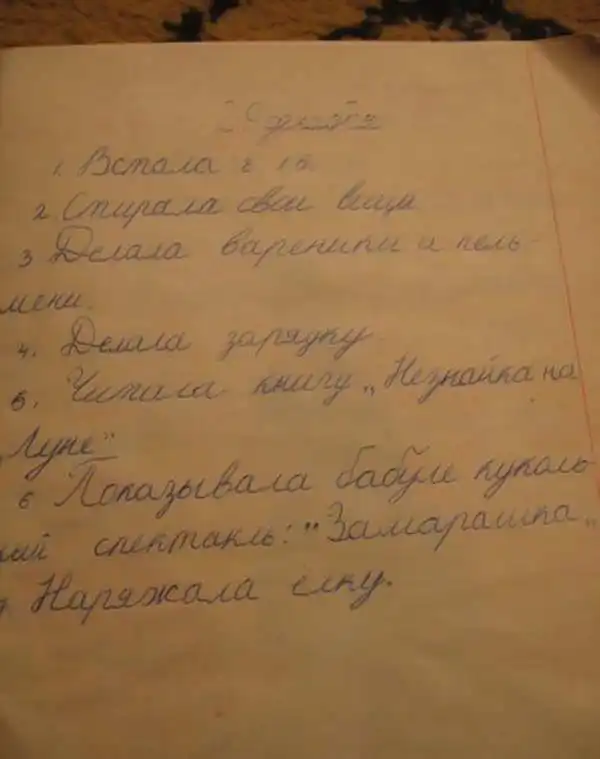 29 декабря
1. Встала в 10
2. Стирала свои вещи
3 Делала вареники и пель-
мени.
4. Делала зарядку
5. Читала книгу „Незнайка на
Луне"
6 Показывала бабуле куколь
ный спектакль: "Замарашка„
7 Наряжала елку.